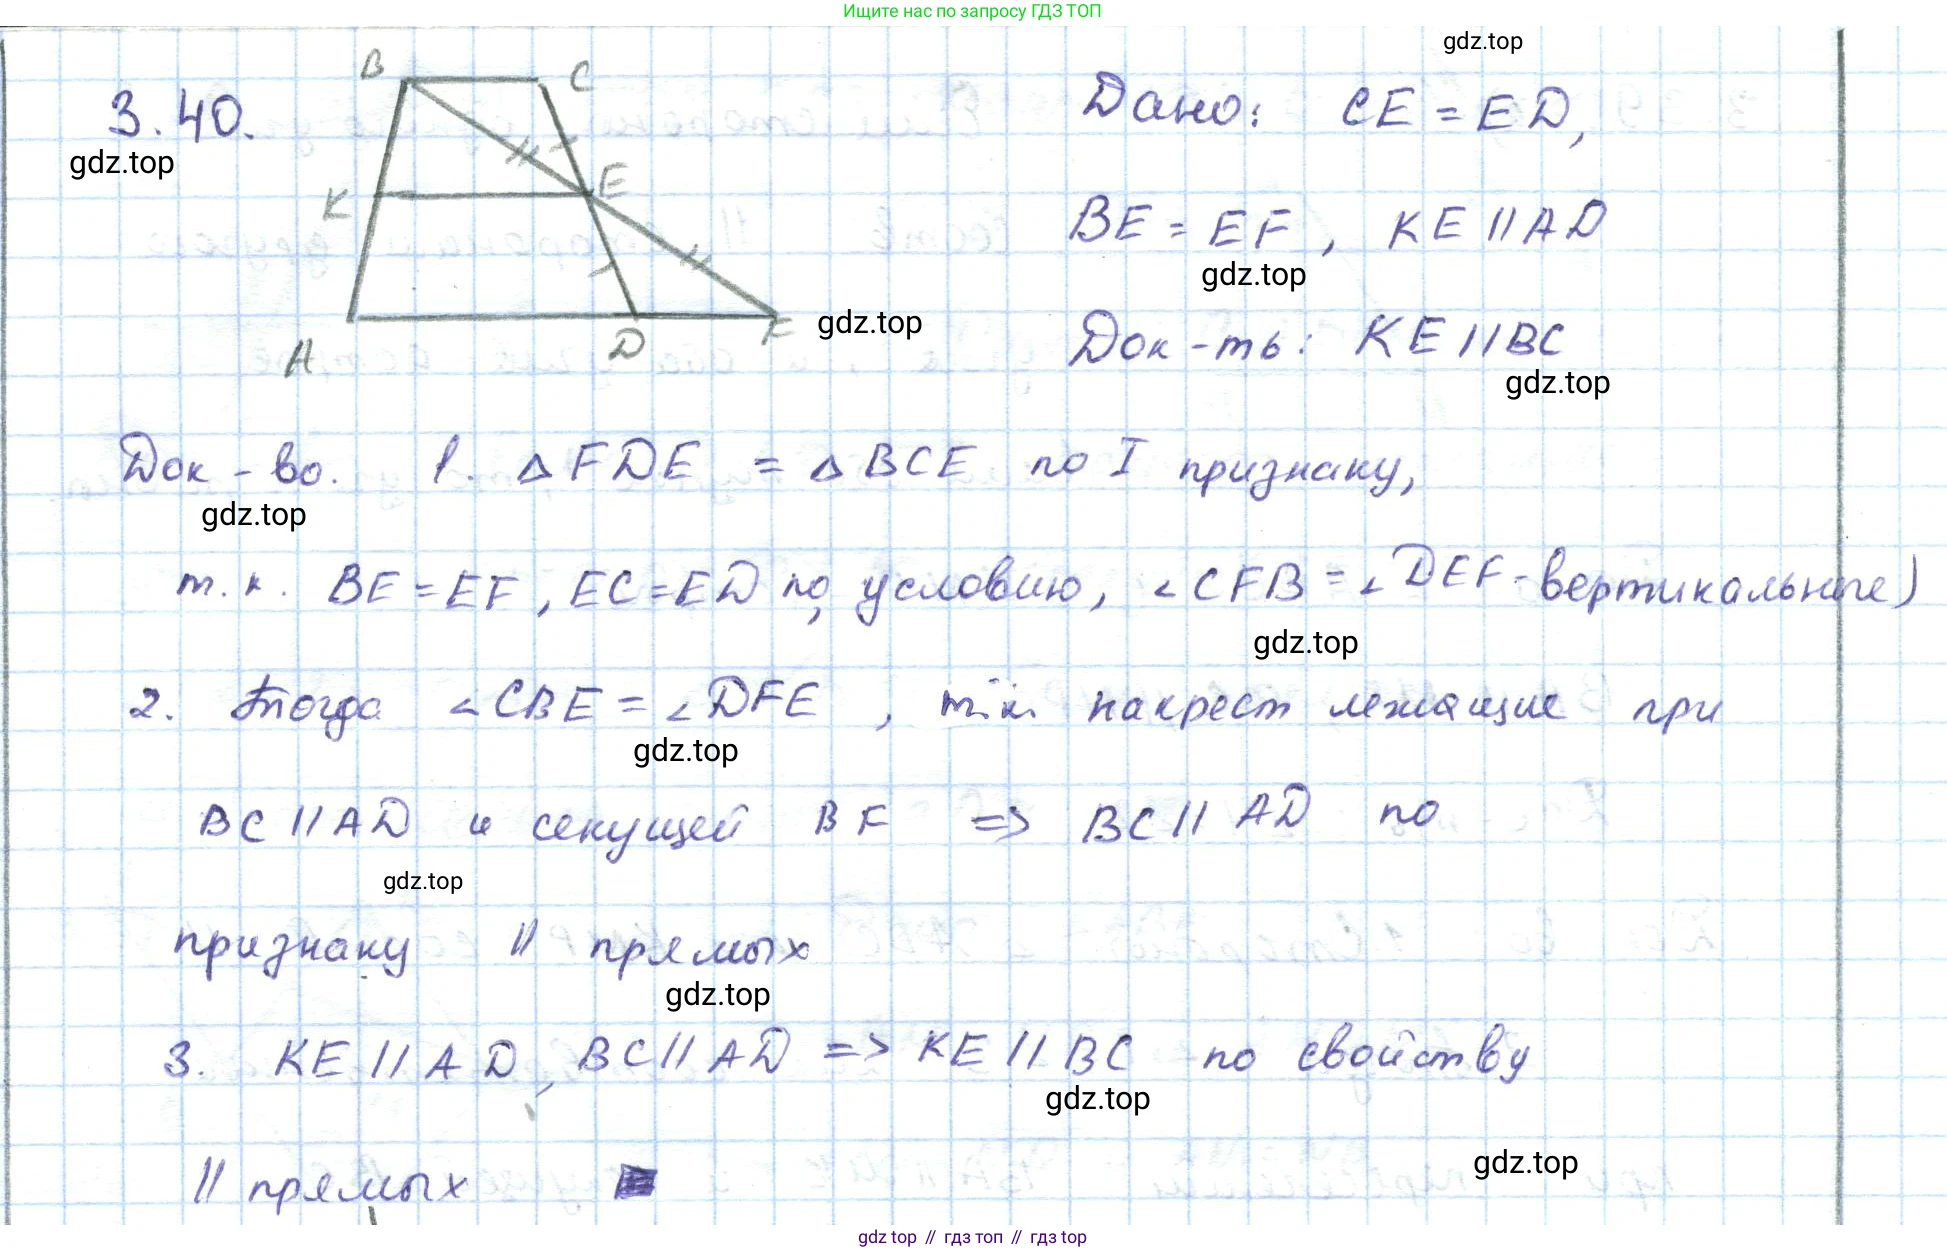 Ищите нас по запросу ГДЗ ТОП
gdz.top
3.40.
gdz.top
B
C
K
E
A
D
F
gdz.top
Дано: CE = ED,
BE = EF, KE || AD
gdz.top
Док-ть: KE || BC
gdz.top
Док-во. 1. △FDE = △BCE по I признаку,
gdz.top
т.к. BE = EF, EC = ED по условию, ∠CFB = ∠DEF - вертикальные)
gdz.top
2. Тогда ∠CBE = ∠DFE, т.к. накрест лежащие при
gdz.top
BC || AD и секущей BF => BC || AD по
gdz.top
признаку || прямых
gdz.top
3. KE || AD, BC || AD => KE || BC по свойству
gdz.top
|| прямых
gdz.top
gdz top // гдз топ // гдз top